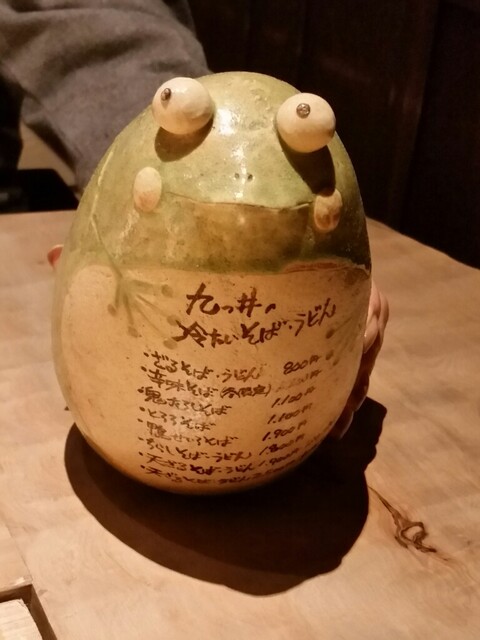 九つ井の
冷たいそば・うどん
・ざるそば・うどん 800円
・辛味そば(冬限定)
・鬼おろしそば 1.100円
・とろろそば 1.100円
・鴨せいろそば 1.900円
・ちらしそば・うどん 1.800円
・天ざるそば・うどん 1.900円